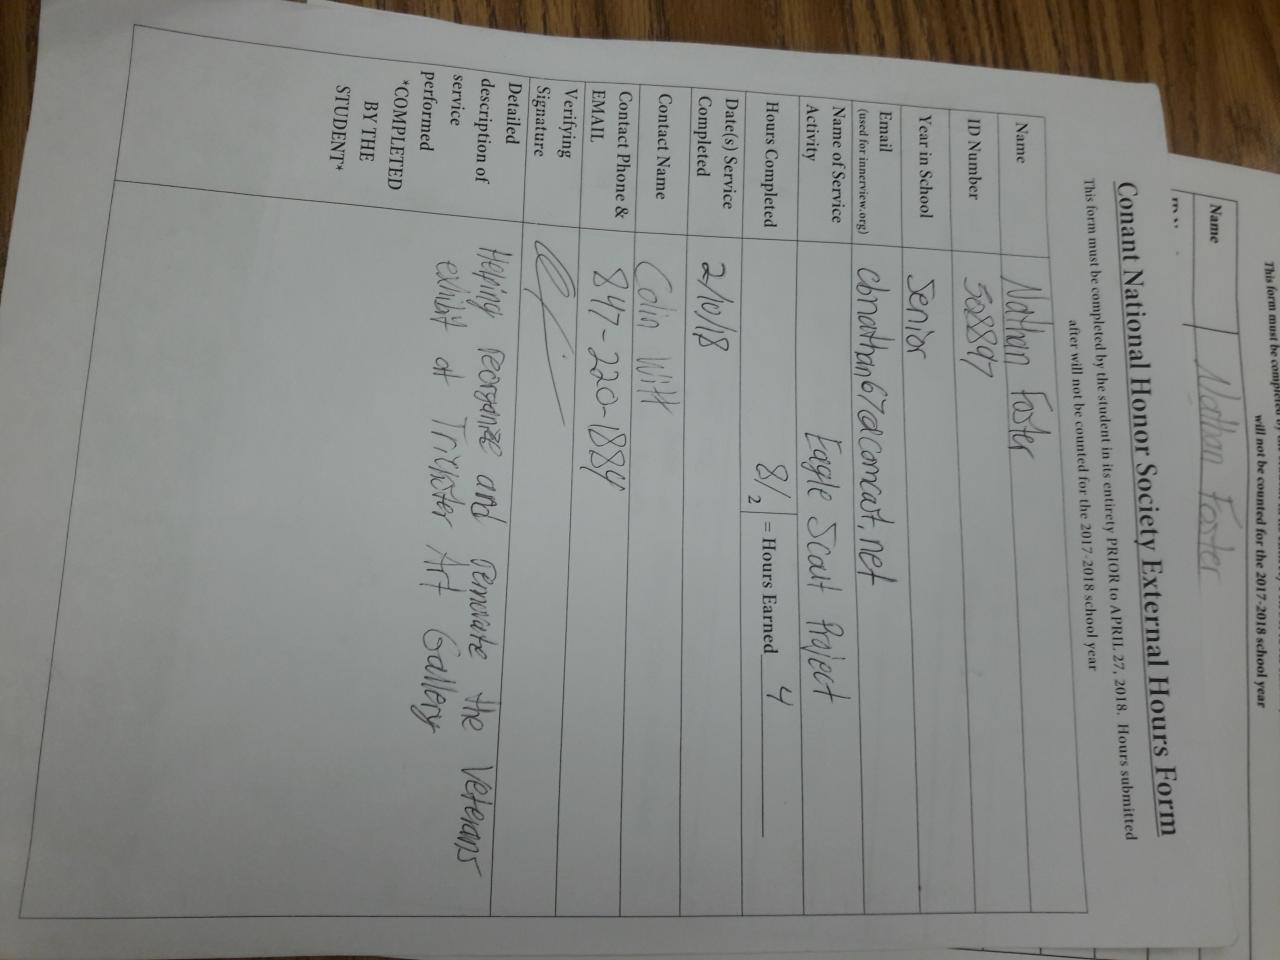 This form must be completed
will not be counted for the 2017-2018 school year
Name Nathan Foster
Conant National Honor Society External Hours Form
This form must be completed by the student in its entirety PRIOR to APRIL 27, 2018. Hours submitted
after will not be counted for the 2017-2018 school year
Name Nathan Foster
ID Number 502897
Year in School Senior
Email
(used for innerview.org) cbnathan67@comcast.net
Name of Service
Activity Eagle Scout Project
Hours Completed 8/2 = Hours Earned 4
Date(s) Service
Completed 2/10/18
Contact Name Colin Witt
Contact Phone &
EMAIL 847-220-1884
Verifying
Signature
Detailed
description of
service
performed
*COMPLETED
BY THE
STUDENT*
Helping reorganize and renovate the Veterans
exhibit at Trickster Art Gallery